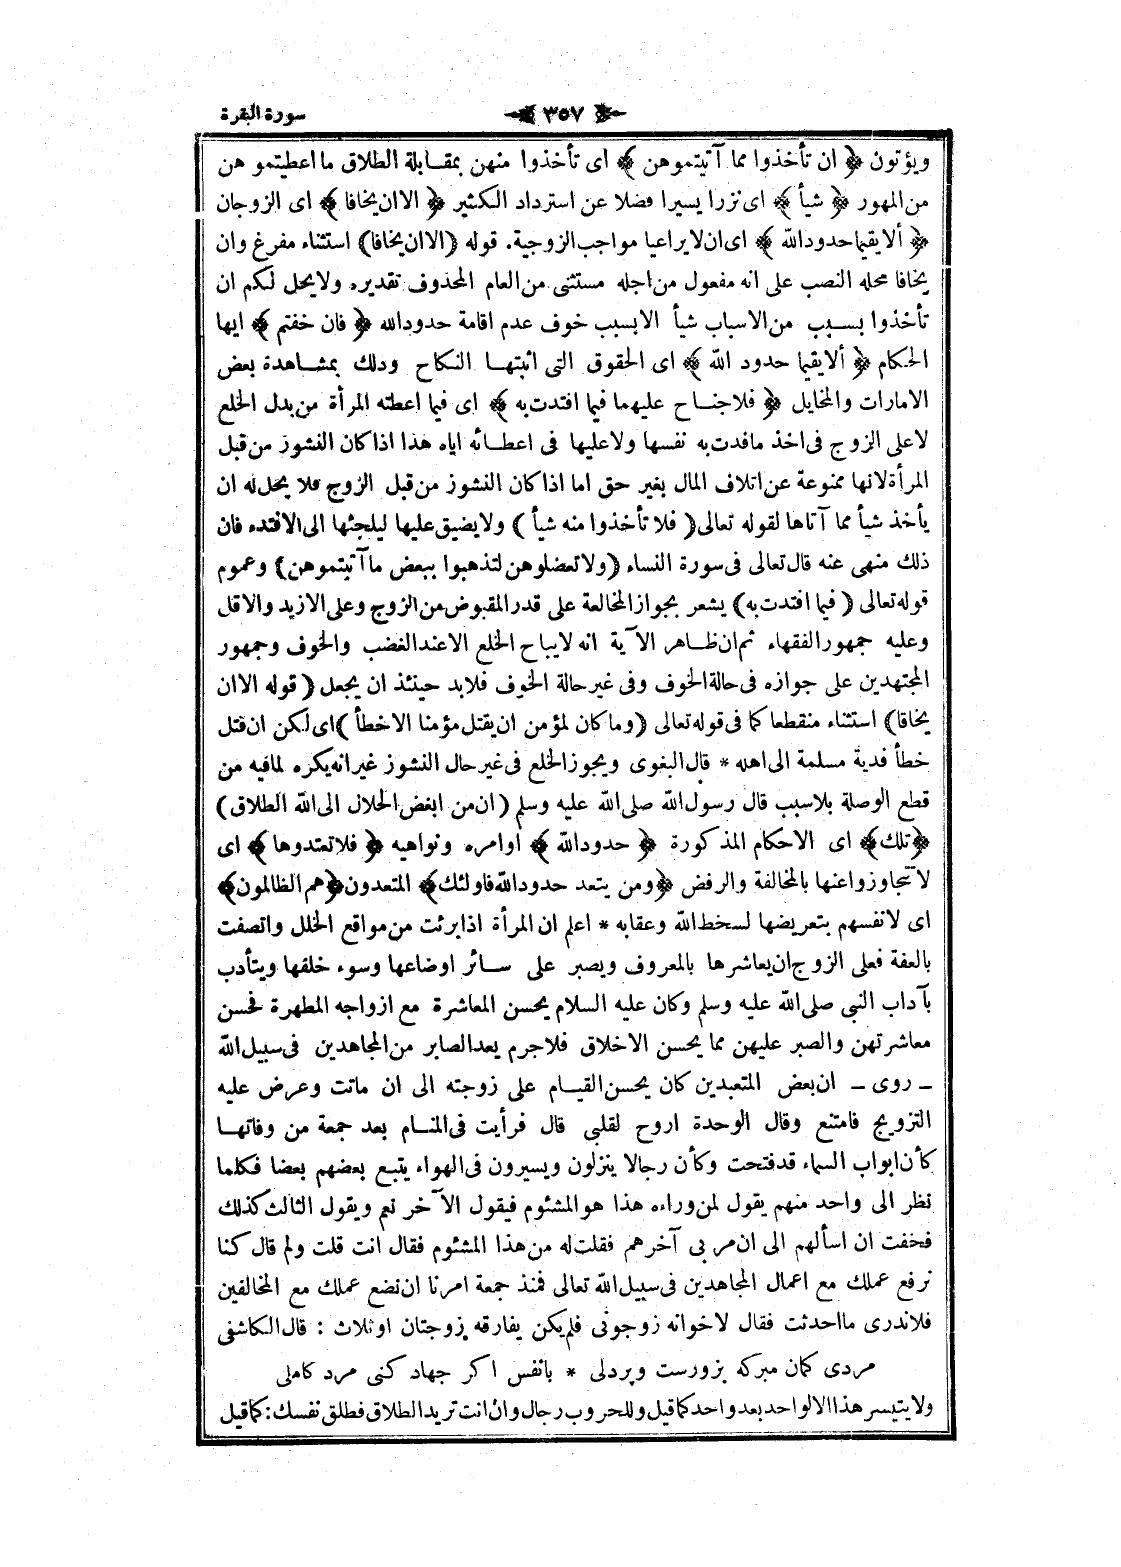 سورة البقرة
٣٥٧
ويؤتون ﴿ ان تأخذوا مما آتيتموهن ﴾ اى تأخذوا منهن بمقابلة الطلاق ما اعطيتموهن
من المهور ﴿ شيأ ﴾ اى نزرا يسيرا فضلا عن استرداد الكثير ﴿ الا ان يخافا ﴾ اى الزوجان
﴿ ألا يقيما حدود الله ﴾ اى ان لا يراعيا مواجب الزوجية. قوله (الا ان يخافا) استثناء مفرغ وان
يخافا محله النصب على انه مفعول من اجله مستثنى من العام المحذوف تقديره ولا يحل لكم ان
تأخذوا بسبب من الاسباب شيأ الا بسبب خوف عدم اقامة حدود الله ﴿ فان خفتم ﴾ ايها
الحكام ﴿ ألا يقيما حدود الله ﴾ اى الحقوق التى اثبتها النكاح وذلك بمشاهدة بعض
الامارات والمخايل ﴿ فلا جناح عليهما فيما افتدت به ﴾ اى فيما اعطته المرأة من بدل الخلع
لا على الزوج فى اخذ ما فدت به نفسها ولا عليها فى اعطائه اياه هذا اذا كان النشوز من قبل
المرأة لانها ممنوعة عن اتلاف المال بغير حق اما اذا كان النشوز من قبل الزوج فلا يحل له ان
يأخذ شيأ مما آتاها لقوله تعالى ( فلا تأخذوا منه شيأ ) ولا يضيق عليها ليلجئها الى الافتداء فان
ذلك منهى عنه قال تعالى فى سورة النساء (ولا تعضلوهن لتذهبوا ببعض ما آتيتموهن) وعموم
قوله تعالى ( فيما افتدت به) يشعر بجواز المخالعة على قدر المقبوض من الزوج وعلى الازيد والاقل
وعليه جمهور الفقهاء ثم ان ظاهر الآية انه لا يباح الخلع الا عند الغضب والخوف وجمهور
المجتهدين على جوازه فى حالة الخوف وفى غير حالة الخوف فلابد حينئذ ان يجعل ( قوله الا ان
يخافا) استثناء منقطعا كما فى قوله تعالى (وما كان لمؤمن ان يقتل مؤمنا الا خطأ ) اى لكن ان قتل
خطأ فدية مسلمة الى اهله * قال البغوى ويجوز الخلع فى غير حال النشوز غير انه يكره لما فيه من
قطع الوصلة بلا سبب قال رسول الله صلى الله عليه وسلم (ان من ابغض الحلال الى الله الطلاق)
﴿تلك﴾ اى الاحكام المذكورة ﴿ حدود الله ﴾ اوامره ونواهيه ﴿ فلا تعتدوها ﴾ اى
لا تتجاوزوا عنها بالمخالفة والرفض ﴿ومن يتعد حدود الله فاولئك﴾ المتعدون ﴿هم الظالمون﴾
اى لانفسهم بتعريضها لسخط الله وعقابه * اعلم ان المرأة اذا برئت من مواقع الخلل واتصفت
بالعفة فعلى الزوج ان يعاشرها بالمعروف ويصبر على سائر اوضاعها وسوء خلقها ويتأدب
بآداب النبى صلى الله عليه وسلم وكان عليه السلام يحسن المعاشرة مع ازواجه المطهرة فحسن
معاشرتهن والصبر عليهن مما يحسن الاخلاق فلا جرم يعد الصابر من المجاهدين فى سبيل الله
ـ روى ـ ان بعض المتعبدين كان يحسن القيام على زوجته الى ان ماتت وعرض عليه
التزويج فامتنع وقال الوحدة اروح لقلبى قال فرأيت فى المنام بعد جمعة من وفاتها
كأن ابواب السماء قد فتحت وكأن رجالا ينزلون ويسيرون فى الهواء يتبع بعضهم بعضا فكلما
نظر الى واحد منهم يقول لمن وراءه هذا هو المشئوم فيقول الآخر نعم ويقول الثالث كذلك
فخفت ان اسألهم الى ان مر بى آخرهم فقلت له من هذا المشئوم فقال انت قلت ولم قال كنا
نرفع عملك مع اعمال المجاهدين فى سبيل الله تعالى فمنذ جمعة امرنا ان نضع عملك مع المخالفين
فلا ندرى ما احدثت فقال لاخوانه زوجونى فلم يكن يفارقه زوجتان او ثلاث : قال الكاشفى
مردى كمان مبركه بزورست وپردلى * با نفس اكر جهاد كنى مرد كاملى
ولا يتيسر هذا الا لواحد بعد واحد كما قيل وللحروب رجال وان انت تريد الطلاق فطلق نفسك : كما قيل